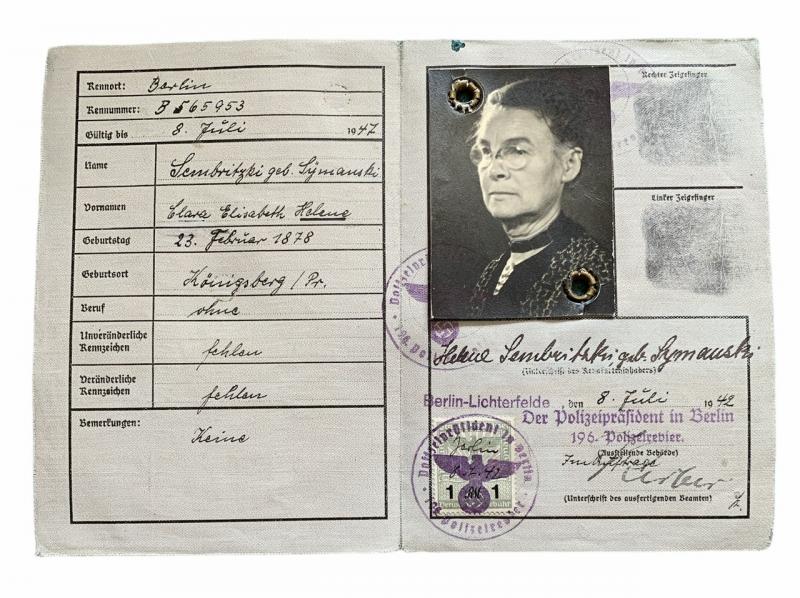 Kennort: Berlin
Kennummer: B 565953
Gültig bis 8. Juli 1947
Name Sembritzki geb. Sÿmanski
Vornamen Clara Elisabeth Helene
Geburtstag 23. Februar 1878
Geburtsort Königsberg / Pr.
Beruf ohne
Unveränderliche
Kennzeichen fehlen
Veränderliche
Kennzeichen fehlen
Bemerkungen:
Keine
Rechter Zeigefinger
Linker Zeigefinger
Helene Sembritzki, geb. Symanski
(Unterschrift des Kennkarteninhabers)
Berlin-Lichterfelde, den 8. Juli 1942
Der Polizeipräsident in Berlin
196. Polizeirevier.
(Ausstellende Behörde)
Im Auftrage
(Unterschrift des ausfertigenden Beamten)
Der Polizeipräsident in Berlin
196. Polizeirevier
1 RM 1